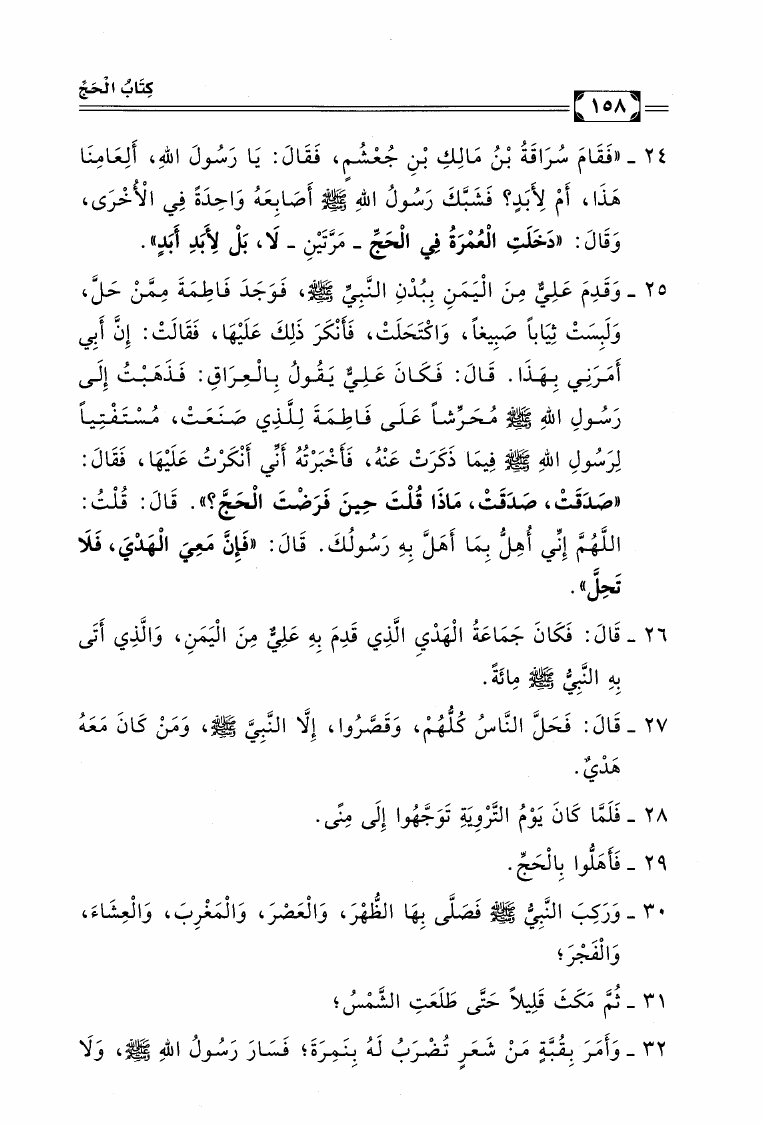 كِتَابُ الْحَجِّ
١٥٨
٢٤ ـ «فَقَامَ سُرَاقَةُ بْنُ مَالِكِ بْنِ جُعْشُمٍ، فَقَالَ: يَا رَسُولَ اللهِ، أَلِعَامِنَا
هَذَا، أَمْ لِأَبَدٍ؟ فَشَبَّكَ رَسُولُ اللهِ ﷺ أَصَابِعَهُ وَاحِدَةً فِي الْأُخْرَى،
وَقَالَ: «دَخَلَتِ الْعُمْرَةُ فِي الْحَجِّ ـ مَرَّتَيْنِ ـ لَا، بَلْ لِأَبَدِ أَبَدٍ».
٢٥ ـ وَقَدِمَ عَلِيٌّ مِنَ الْيَمَنِ بِبُدْنِ النَّبِيِّ ﷺ، فَوَجَدَ فَاطِمَةَ مِمَّنْ حَلَّ،
وَلَبِسَتْ ثِيَاباً صَبِيغاً، وَاكْتَحَلَتْ، فَأَنْكَرَ ذَلِكَ عَلَيْهَا، فَقَالَتْ: إِنَّ أَبِي
أَمَرَنِي بِهَذَا. قَالَ: فَكَانَ عَلِيٌّ يَقُولُ بِالْعِرَاقِ: فَذَهَبْتُ إِلَى
رَسُولِ اللهِ ﷺ مُحَرِّشاً عَلَى فَاطِمَةَ لِلَّذِي صَنَعَتْ، مُسْتَفْتِياً
لِرَسُولِ اللهِ ﷺ فِيمَا ذَكَرَتْ عَنْهُ، فَأَخْبَرْتُهُ أَنِّي أَنْكَرْتُ عَلَيْهَا، فَقَالَ:
«صَدَقَتْ، صَدَقَتْ، مَاذَا قُلْتَ حِينَ فَرَضْتَ الْحَجَّ؟». قَالَ: قُلْتُ:
اللَّهُمَّ إِنِّي أُهِلُّ بِمَا أَهَلَّ بِهِ رَسُولُكَ. قَالَ: «فَإِنَّ مَعِيَ الْهَدْيَ، فَلَا
تَحِلَّ».
٢٦ ـ قَالَ: فَكَانَ جَمَاعَةُ الْهَدْيِ الَّذِي قَدِمَ بِهِ عَلِيٌّ مِنَ الْيَمَنِ، وَالَّذِي أَتَى
بِهِ النَّبِيُّ ﷺ مِائَةً.
٢٧ ـ قَالَ: فَحَلَّ النَّاسُ كُلُّهُمْ، وَقَصَّرُوا، إِلَّا النَّبِيَّ ﷺ، وَمَنْ كَانَ مَعَهُ
هَدْيٌ.
٢٨ ـ فَلَمَّا كَانَ يَوْمُ التَّرْوِيَةِ تَوَجَّهُوا إِلَى مِنًى.
٢٩ ـ فَأَهَلُّوا بِالْحَجِّ.
٣٠ ـ وَرَكِبَ النَّبِيُّ ﷺ فَصَلَّى بِهَا الظُّهْرَ، وَالْعَصْرَ، وَالْمَغْرِبَ، وَالْعِشَاءَ،
وَالْفَجْرَ؛
٣١ ـ ثُمَّ مَكَثَ قَلِيلاً حَتَّى طَلَعَتِ الشَّمْسُ؛
٣٢ ـ وَأَمَرَ بِقُبَّةٍ مَنْ شَعَرٍ تُضْرَبُ لَهُ بِنَمِرَةَ؛ فَسَارَ رَسُولُ اللهِ ﷺ، وَلَا